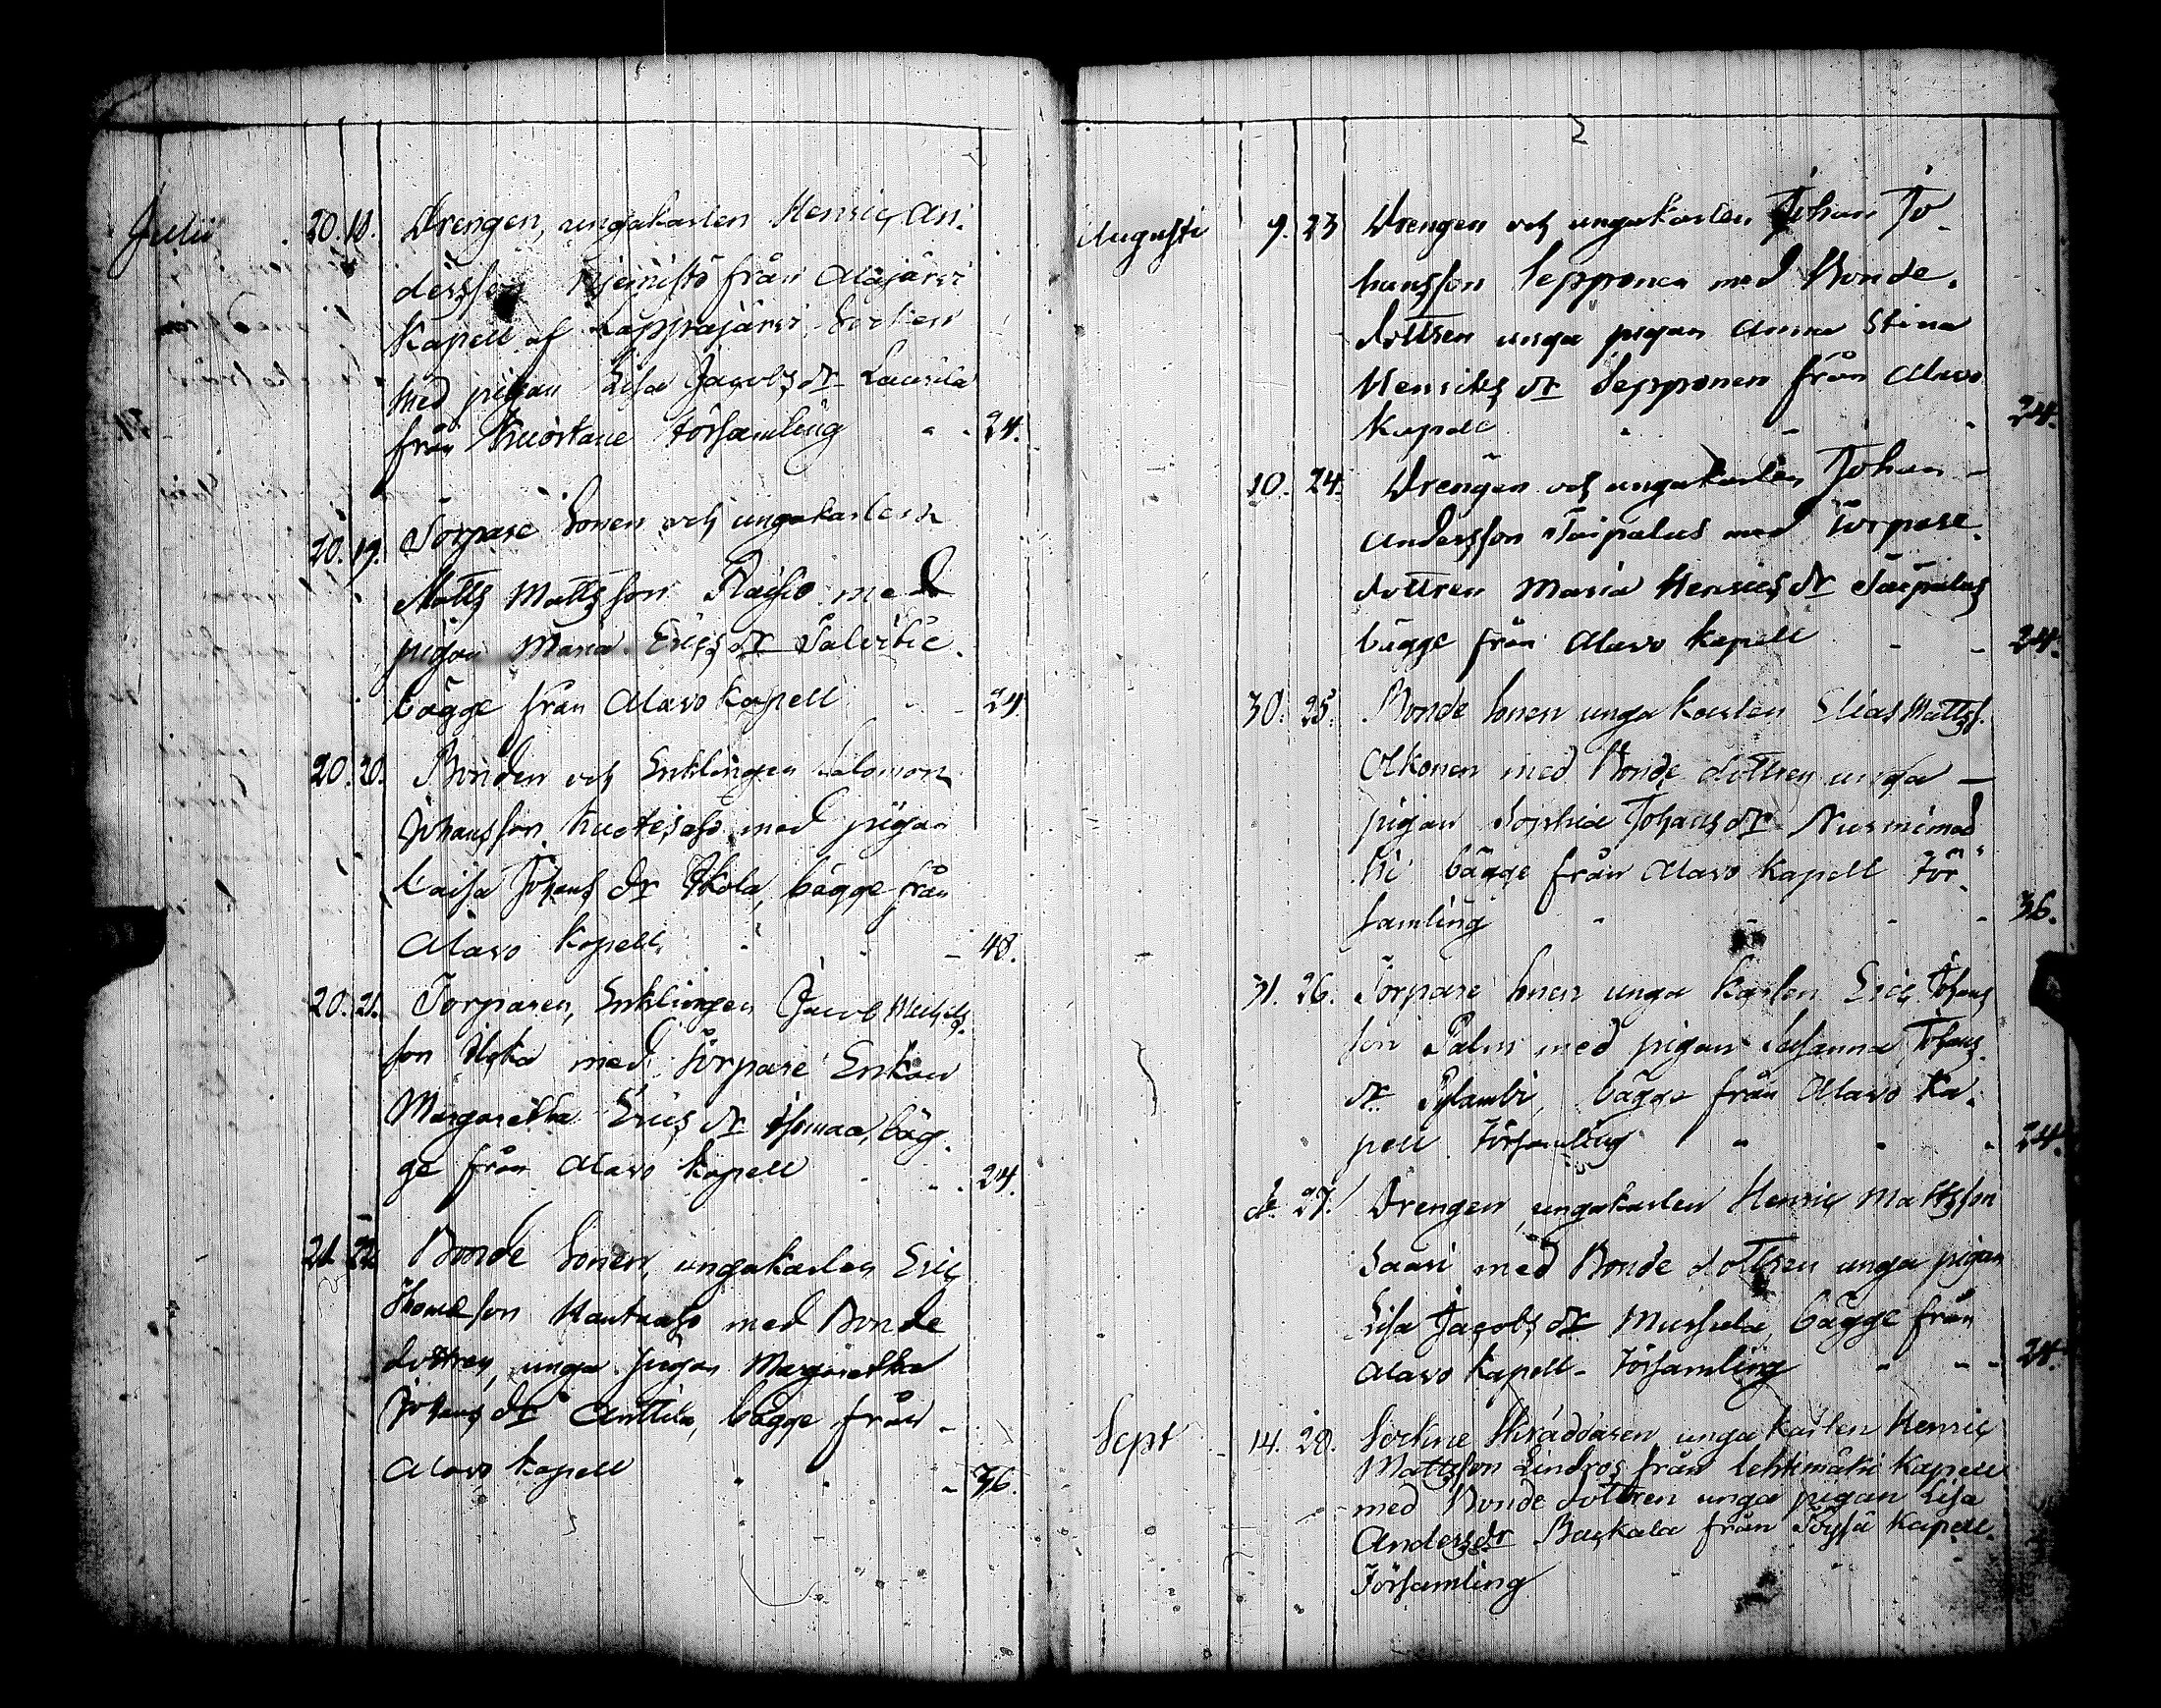 Julii 20. 18. Drengen, ungakarlen Henric An-
dersson Niemistö från Alajärvi
Kapell af Lappajärvi Socken
med pigan Lisa Jacobs dr Laurila
från Kuortane Församling - - 24.
20. 19. Torpare Sonen och ungakarlen
Matts Mattsson Raisio med
pigan Maria Erics dr Salvitie.
bägge från Alavo Kapell - - 24.
20. 20. Bonden och Enklingen Salomon
Johansson Kuotesaho med pigan
Caisa Johans dr Skola, bägge från
Alavo Kapell - - 48.
20. 21. Torparen, Enklingen Jacob Michels
son Ilska med Torpare Enkan
Margaretha Erics dr Isomaa, bäg-
ge från Alavo Kapell - - 24.
21. 22. Bonde Sonen, ungakarlen Eric
Thomasson Rantuaho med Bonde
dottren, unga pigan Margaretha
Johans dr Anttila, bägge från -
Alavo Kapell - - 36.
Augusti 9. 23 Drengen och ungakarlen Johan Jo-
hansson Sepponen med Bonde.
dottren unga pigan Anna Stina
Henrics dr Sepponen från Alavo
Kapell - - - 24.
10. 24. Drengen och ungakarlen Johan -
Andersson Taipalus med Torpare.
dottren Maria Henrics dr Taipalus
bägge från Alavo Kapell - - 24.
30. 25. Bonde Sonen unga karlen Elias Mattss.
Olkonen med Bonde dottren unga -
pigan Sophia Johans dr Nurmimä
ki bägge från Alavo Kapell För-
samling - - - - 36.
31. 26. Torpare Sonen unga karlen Eric Johans
son Palm med pigan Susanna Johans
dr Sylambi, bägge från Alavo Ka-
pell Församling - - - 24.
d: 27. Drengen, ungakarlen Henric Mattsson
Saari med Bonde dottren unga pigan
Lisa Jacobs dr Mussula, bägge från
Alavo Kapell - Församling - - - 24.
Sept - 14. 28. Sockne Skräddaren unga karlen Henric
Mattsson Lindros från Lehtimäki Kapell
med Bonde dottren unga pigan Lisa
Anders dr Backala från Töysä Kapell.
Församling